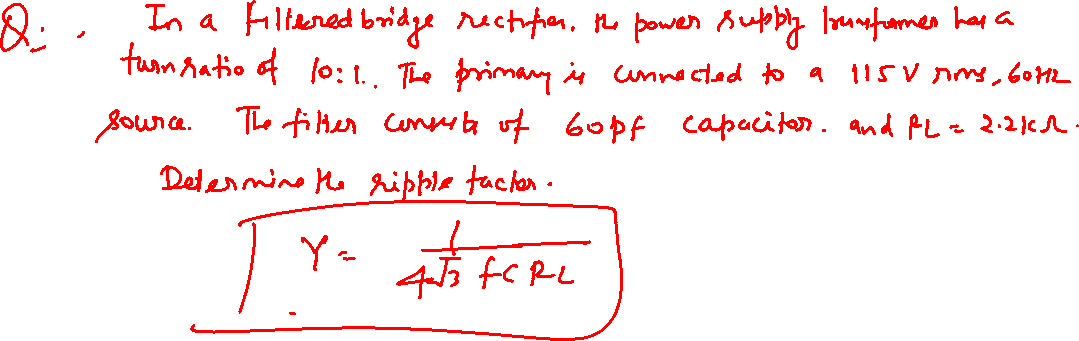 Q:. In a filtered bridge rectifier. the power supply transformer has a
turn ratio of 10:1. The primary is connected to a 115 V rms, 60Hz
source. The filter consists of 60pf capacitor. and RL = 2.2kΩ.
Determine the ripple factor.
γ = 1/(4√3 fC RL)